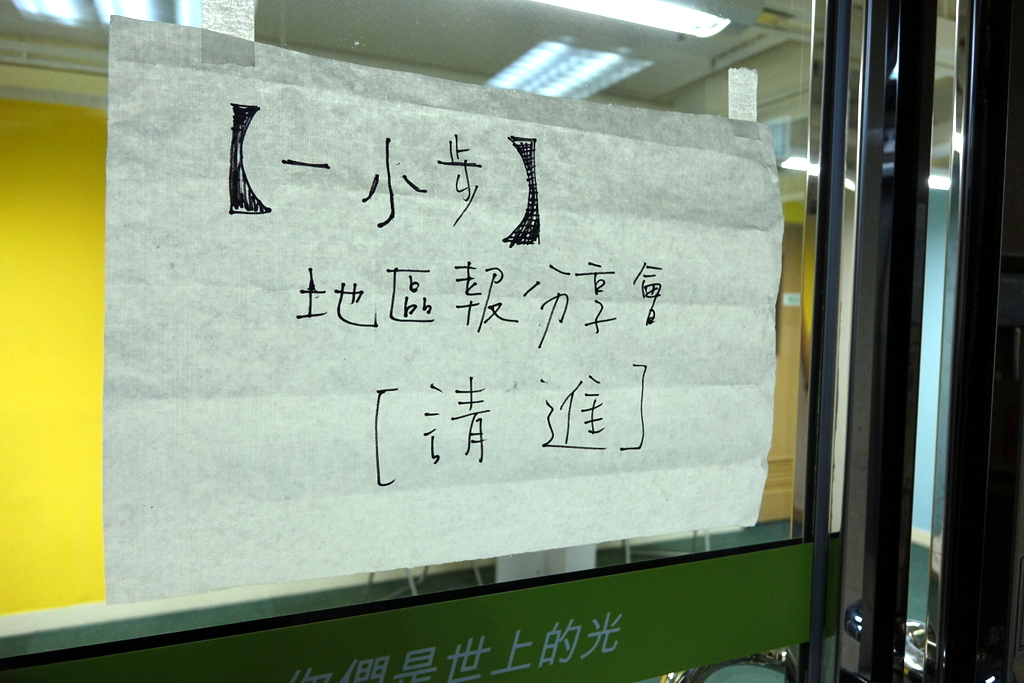 【一小步】
地區報分享會
[請進]
你們是世上的光